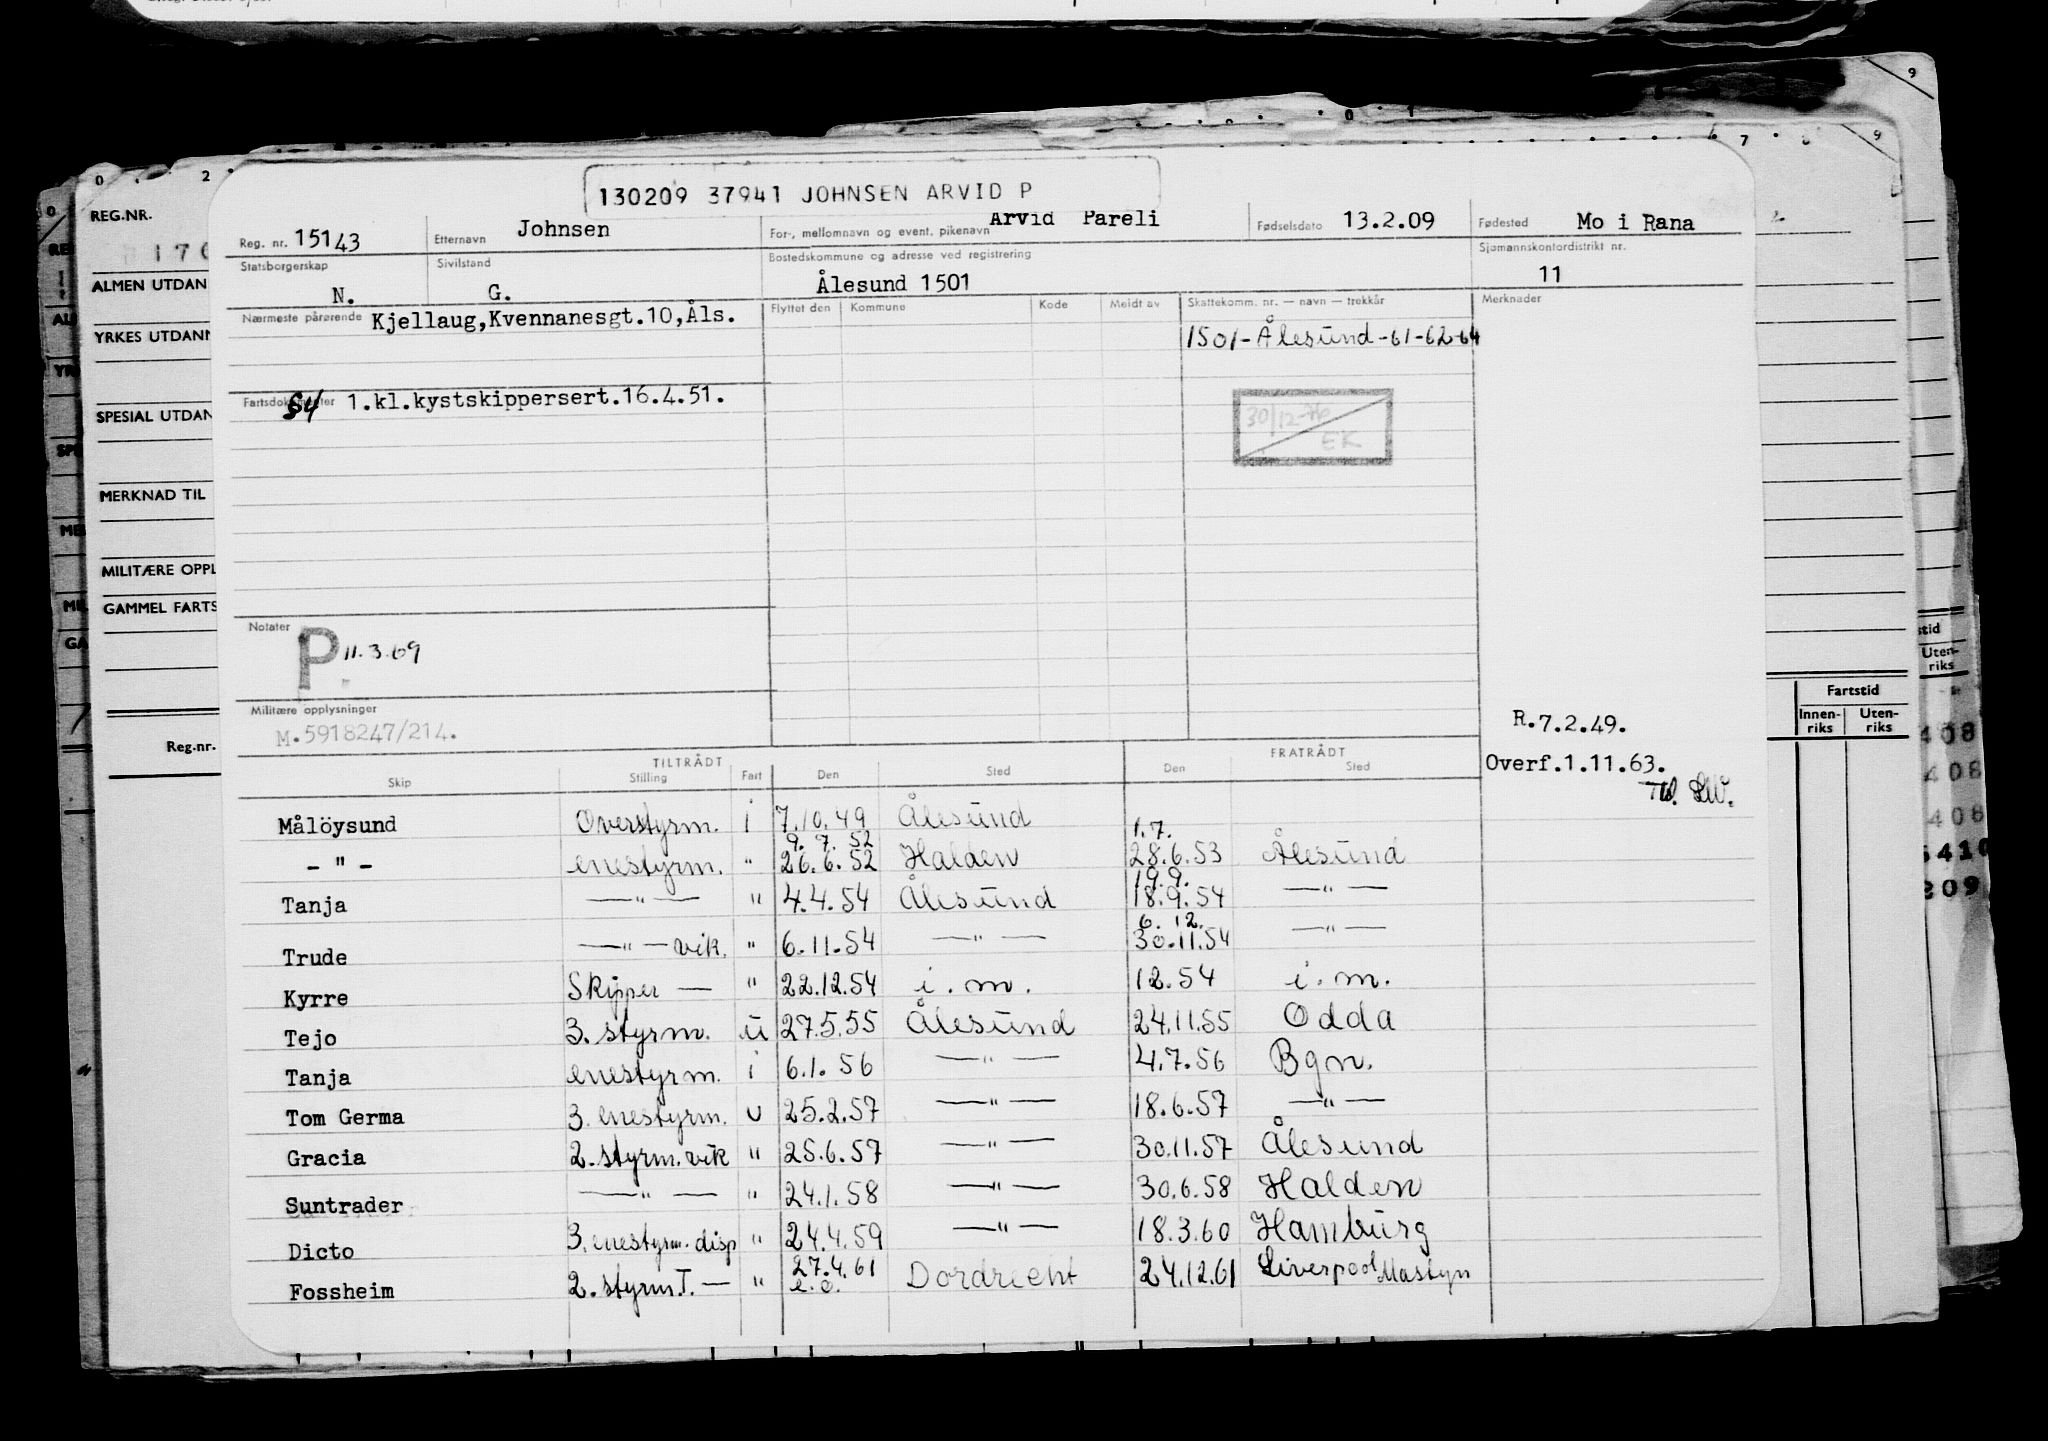 130209 37941 JOHNSEN ARVID P
REG.NR.
Reg. nr. 15143 Etternavn Johnsen For-, mellomnavn og event. pikenavn Arvid Pareli Fødselsdato 13.2.09 Fødested Mo i Rana
Statsborgerskap N. Sivilstand G. Bostedskommune og adresse ved registrering Ålesund 1501 Sjømannskontordistrikt nr. 11
ALMEN UTDAN
Nærmeste pårørende Kjellaug,Kvennanesgt.10,Åls. Flyttet den Kommune Kode Meldt av Skattekomm. nr. — navn — trekkår Merknader
YRKES UTDANN
1501-Ålesund-61-62-64
Fartsdokumenter S4 1.kl.kystskippersert.16.4.51.
SPESIAL UTDAN
30/12- EK
MERKNAD TIL
MILITÆRE OPPL
GAMMEL FARTS
Notater P 11.3.69
Militære opplysninger M.5918247/214.
R.7.2.49.
Overf.1.11.63.
Reg.nr.
Fartstid
Innen-riks Uten-riks
TILTRÅDT FRATRÅDT
Skip Stilling Fart Den Sted Den Sted
Målöysund Overstyrm. i 7.10.49 Ålesund
9.7.52 1.7.
- " - enestyrm. " 26.6.52 Halden 28.6.53 Ålesund
19.9.
Tanja — " — " 4.4.54 Ålesund 18.9.54 — " —
6.12.
Trude — " — vik. " 6.11.54 — " — 30.11.54 — " —
Kyrre Skipper — " 22.12.54 i.m. 12.54 i.m.
Tejo 3. styrm. u 27.5.55 Ålesund 24.11.55 Odda
Tanja enestyrm. i 6.1.56 — " — 4.7.56 Bgn.
Tom Germa 3. enestyrm. u 25.2.57 — " — 18.6.57 — " —
Gracia 2. styrm. vik " 25.6.57 — " — 30.11.57 Ålesund
Suntrader — " — " 24.1.58 — " — 30.6.58 Halden
Dicto 3. enestyrm. disp " 24.4.59 — " — 18.3.60 Hamburg
Fossheim 2. styrm. T. — " 27.4.61 e.o. Dordrecht 24.12.61 Liverpool Mastyn